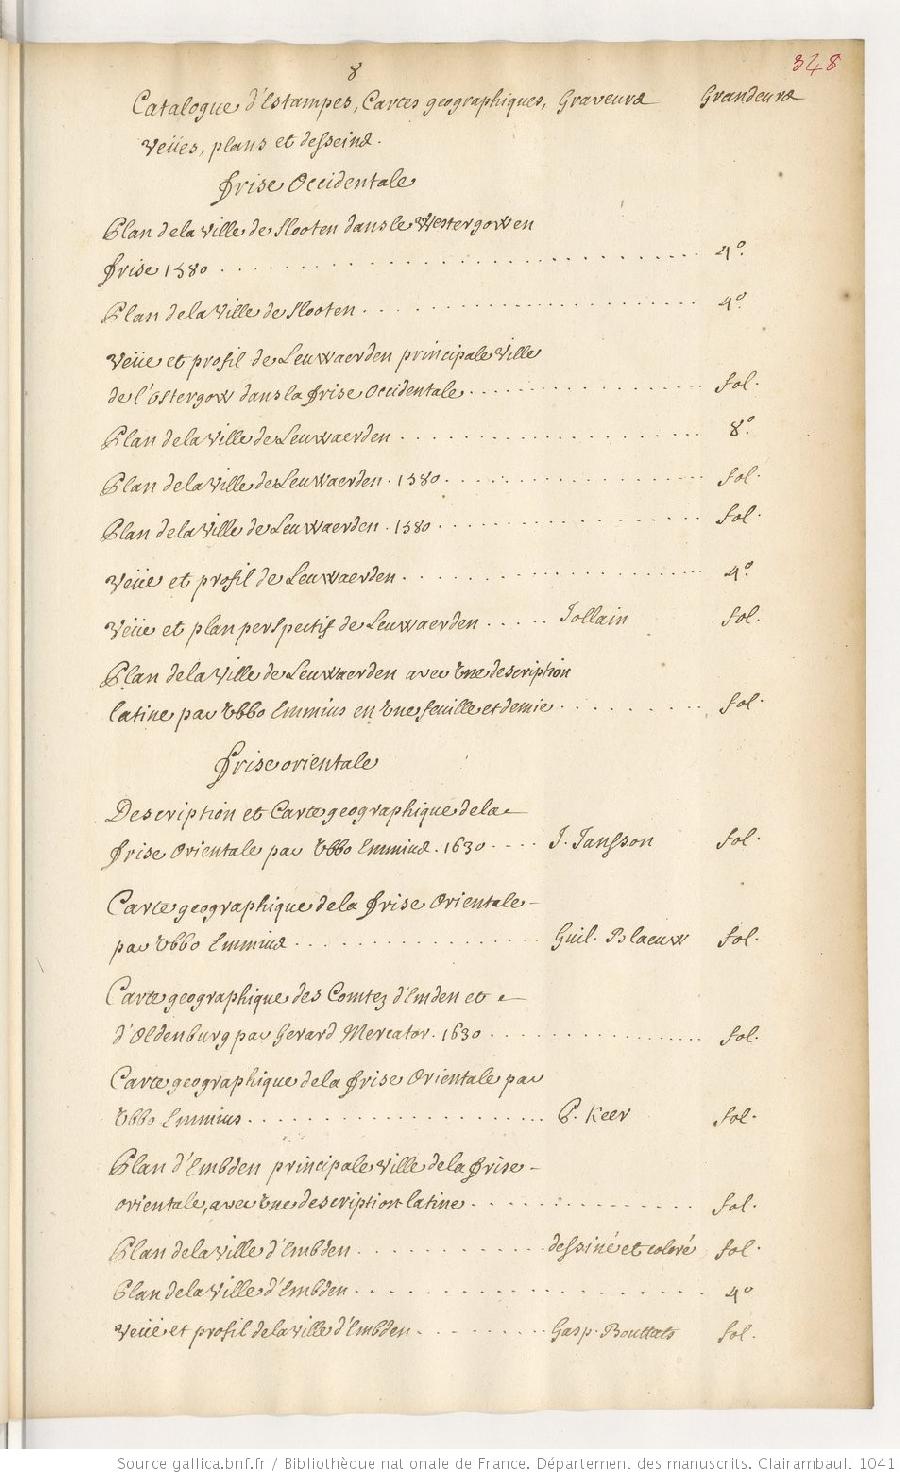 8
348
Catalogue d'Estampes, Cartes geographiques, Graveurs Grandeurs
Veües, plans et desseins.
Frise Occidentale
Plan de la Ville de Slooten dans le Westergow en
Frise 1580 4°.
Plan de la Ville de Slooten 4°.
Veüe et profil de Leuwaerden principale Ville
de l'Ostergow dans la Frise Occidentale fol.
Plan de la Ville de Leuwaerden 8°.
Plan de la Ville de Leuwaerden. 1580 fol.
Plan de la Ville de Leuwaerden. 1580 fol.
Veüe et profil de Leuwaerden 4°.
Veüe et plan perspectif de Leuwaerden Jollain fol.
Plan de la Ville de Leuwaerden avec Une description
latine par Ubbo Emmius en Une feuille et demie fol.
Frise orientale
Description et Carte geographique de la
Frise Orientale par Ubbo Emmius. 1630 J. Jansson fol.
Carte geographique de la Frise Orientale
par Ubbo Emmius Guil. Blaeuw fol.
Carte geographique des Comtez d'Emden et
d'Oldenburg par Gerard Mercator. 1630 fol.
Carte geographique de la Frise Orientale par
Ubbo Emmius P. Keer fol.
Plan d'Embden principale Ville de la Frise
orientale, avec Une description latine fol.
Plan de la Ville d'Embden dessiné et coloré fol.
Plan de la Ville d'Embden 4°
Veüe et profil de la Ville d'Embden Gasp. Bouttats fol.
Source gallica.bnf.fr / Bibliothèque nationale de France. Département des manuscrits. Clairambault 1041